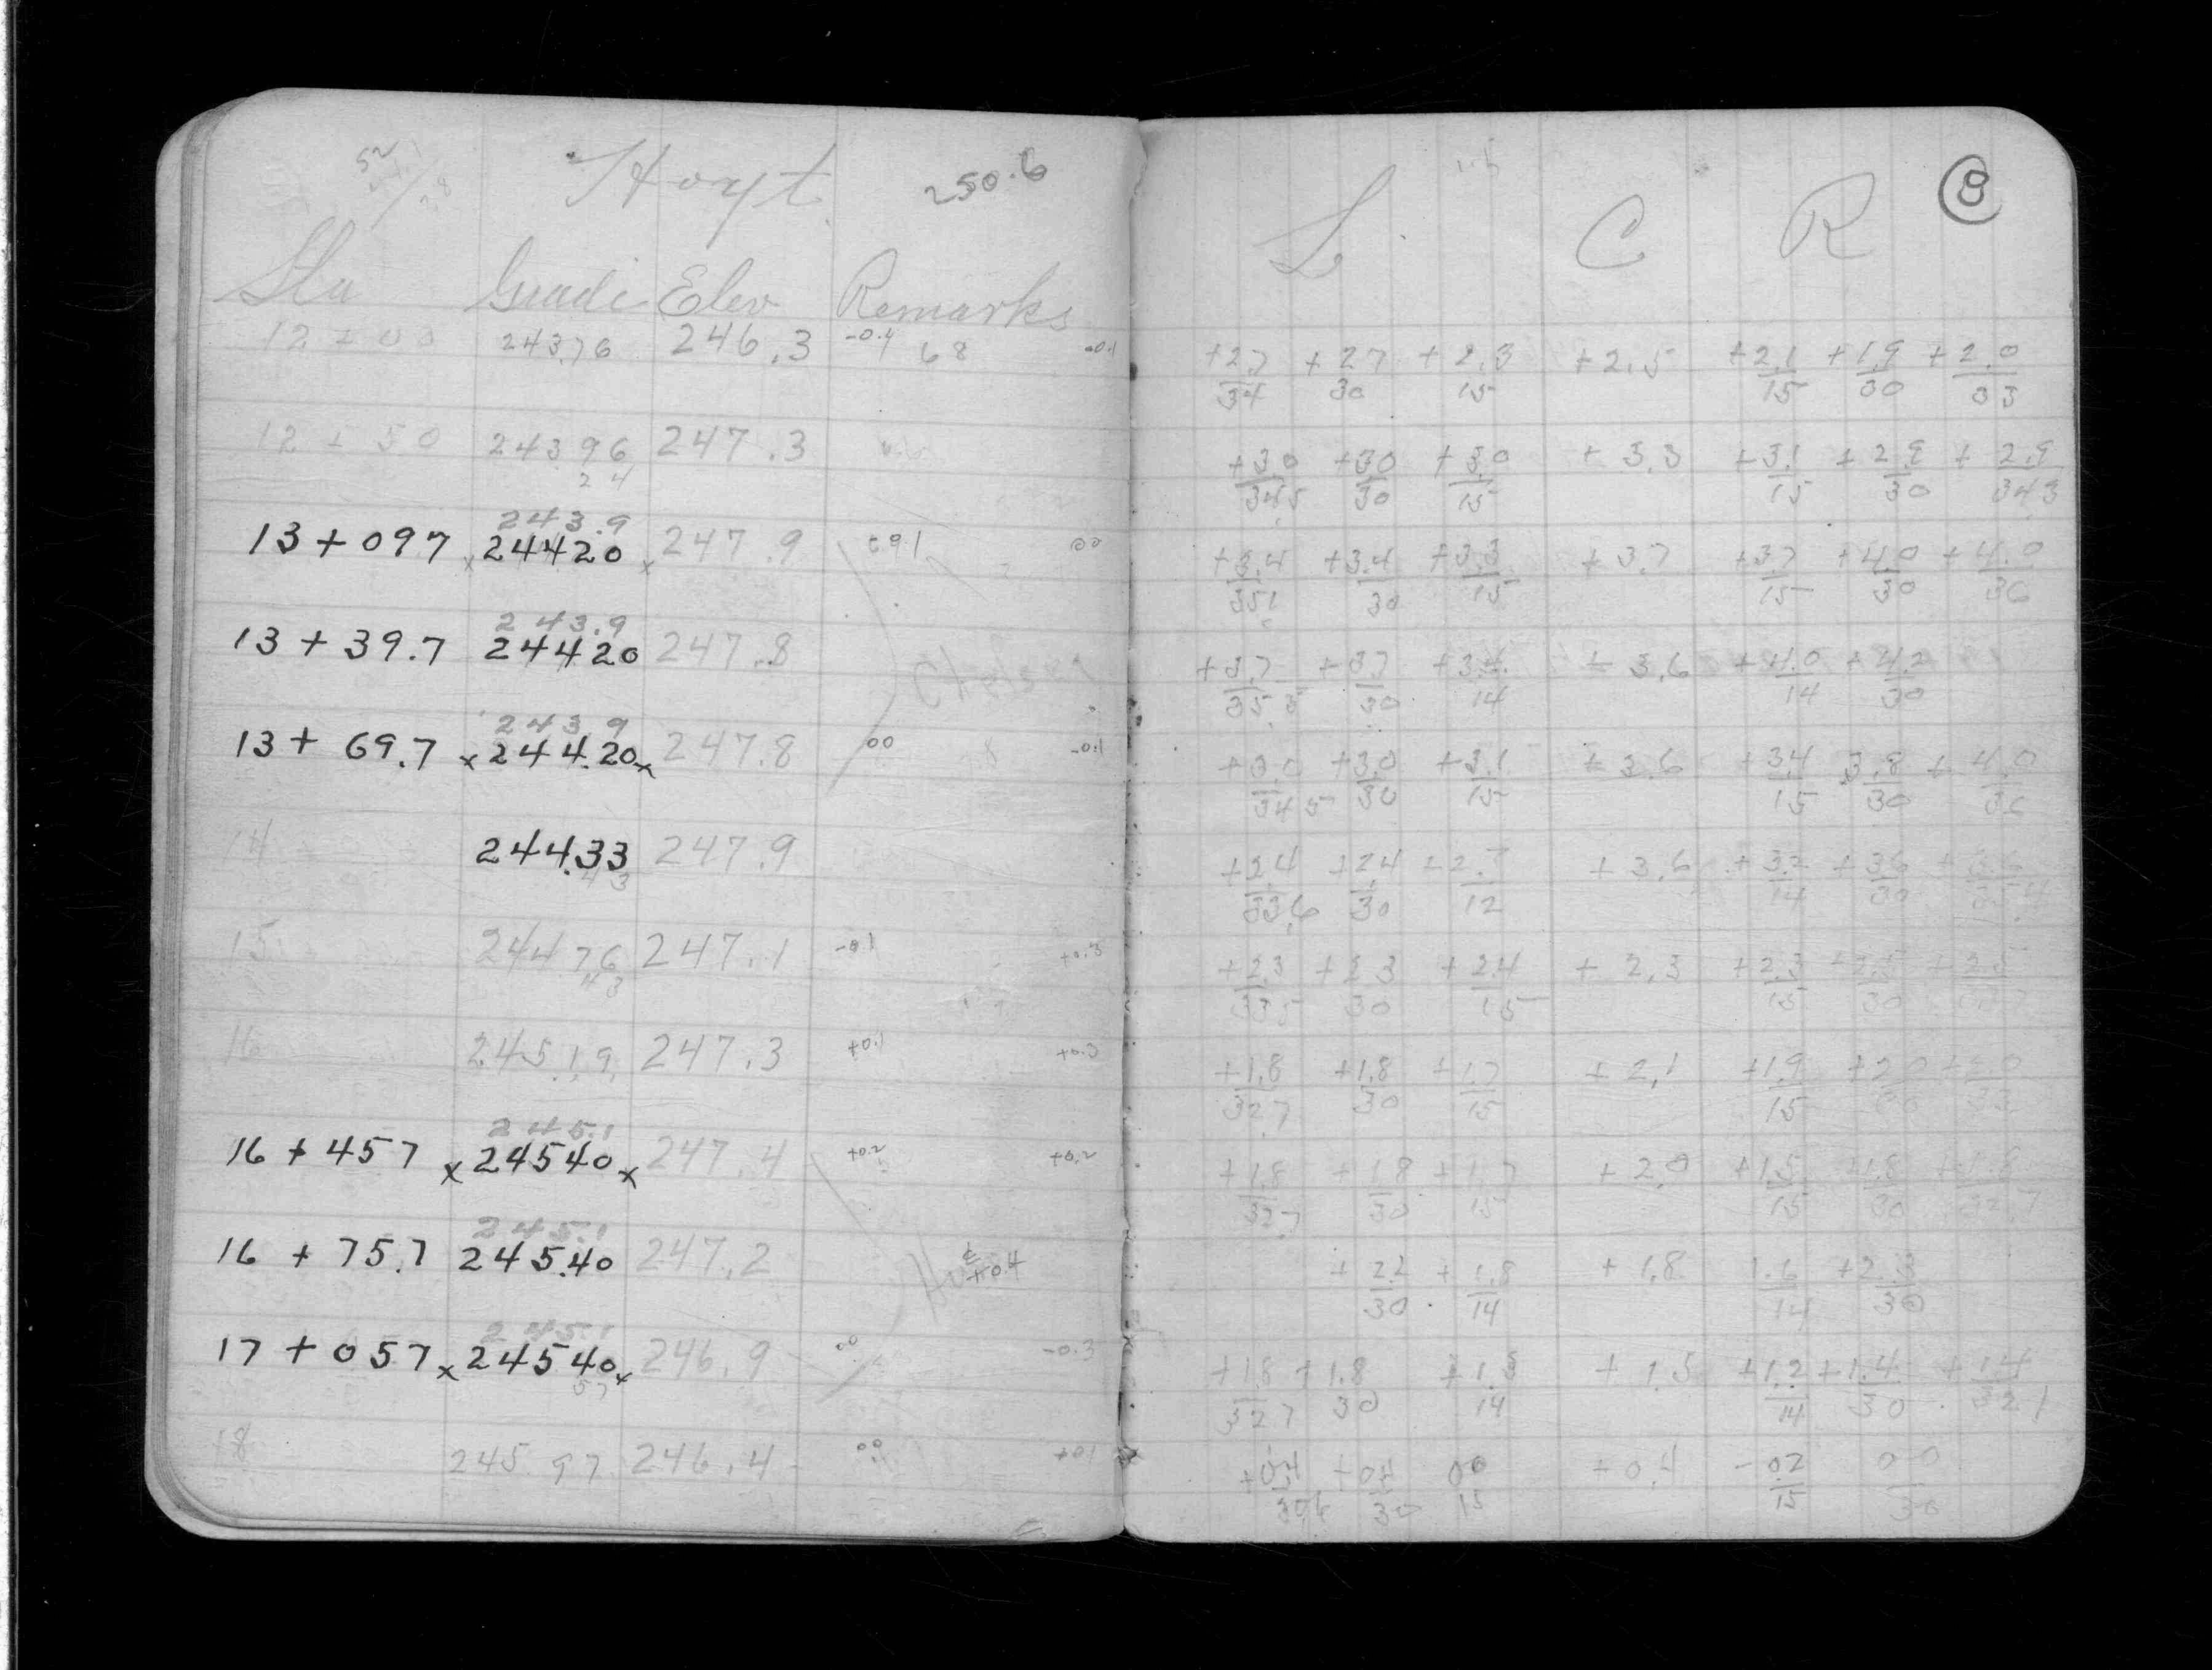 Hoyt 250.6
Sta Grade Elev Remarks
12 + 00 243.76 246.3 -0.4 68 -0.1
12 + 50 243.96 247.3
24
243.9
13 + 097 x 24420 x 247.9 +0.1 00
243.9
13 + 39.7 24420 247.8
Chelsea
243.9
13 + 69.7 x 244.20 x 247.8 00 -0.1
14 244.33 247.9
43
15 244 76 247.1 -0.1 +0.3
43
16 245.19 247.3 +0.1 +0.3
245.1
16 + 457 x 24540 x 247.4 +0.2 +0.2
245.1
16 + 75.7 245.40 247.2 +0.4
245.1
17 + 057 x 24540 x 246.9 00 -0.3
57
18 245 97 246.4 00 +01
8
L C R
+2.7/34 +27/30 +2.3/15 +2.5 +2.1/15 +1.9/30 +2.0/33
+3.0/345 +30/30 +3.0/15 +3.3 +3.1/15 +2.9/30 +2.9/343
+3.4/351 +3.4/30 +3.3/15 +3.7 +3.7/15 +4.0/30 +4.0/36
+3.7/35.5 +3.7/30 +3.4/14 +3.6 +4.0/14 +4.2/30
+3.0/345 +3.0/30 +3.1/15 +3.6 +3.4/15 3.8/30 +4.0/36
+2.4/33.6 +2.4/30 +2.7/12 +3.6 +3.2/14 +3.6/30 +3.6/35.4
+2.3/335 +2.3/30 +2.4/15 +2.3 +2.3/15 +2.5/30 +2.5
+1.8/327 +1.8/30 +1.7/15 +2.1 +1.9/15 +2.0/30 +2.0/33
+1.8/327 +1.8/30 +1.7/15 +2.0 +1.5/15 +1.8/30 +1.8/32.7
+2.2/30 +1.8/14 +1.8 1.6/14 +2.3/30
+1.8/327 +1.8/30 +1.5/14 +1.5 +1.2/14 +1.4/30 +1.4/321
+0.4/306 +0.4/30 00/15 +0.4 -0.2/15 00/30